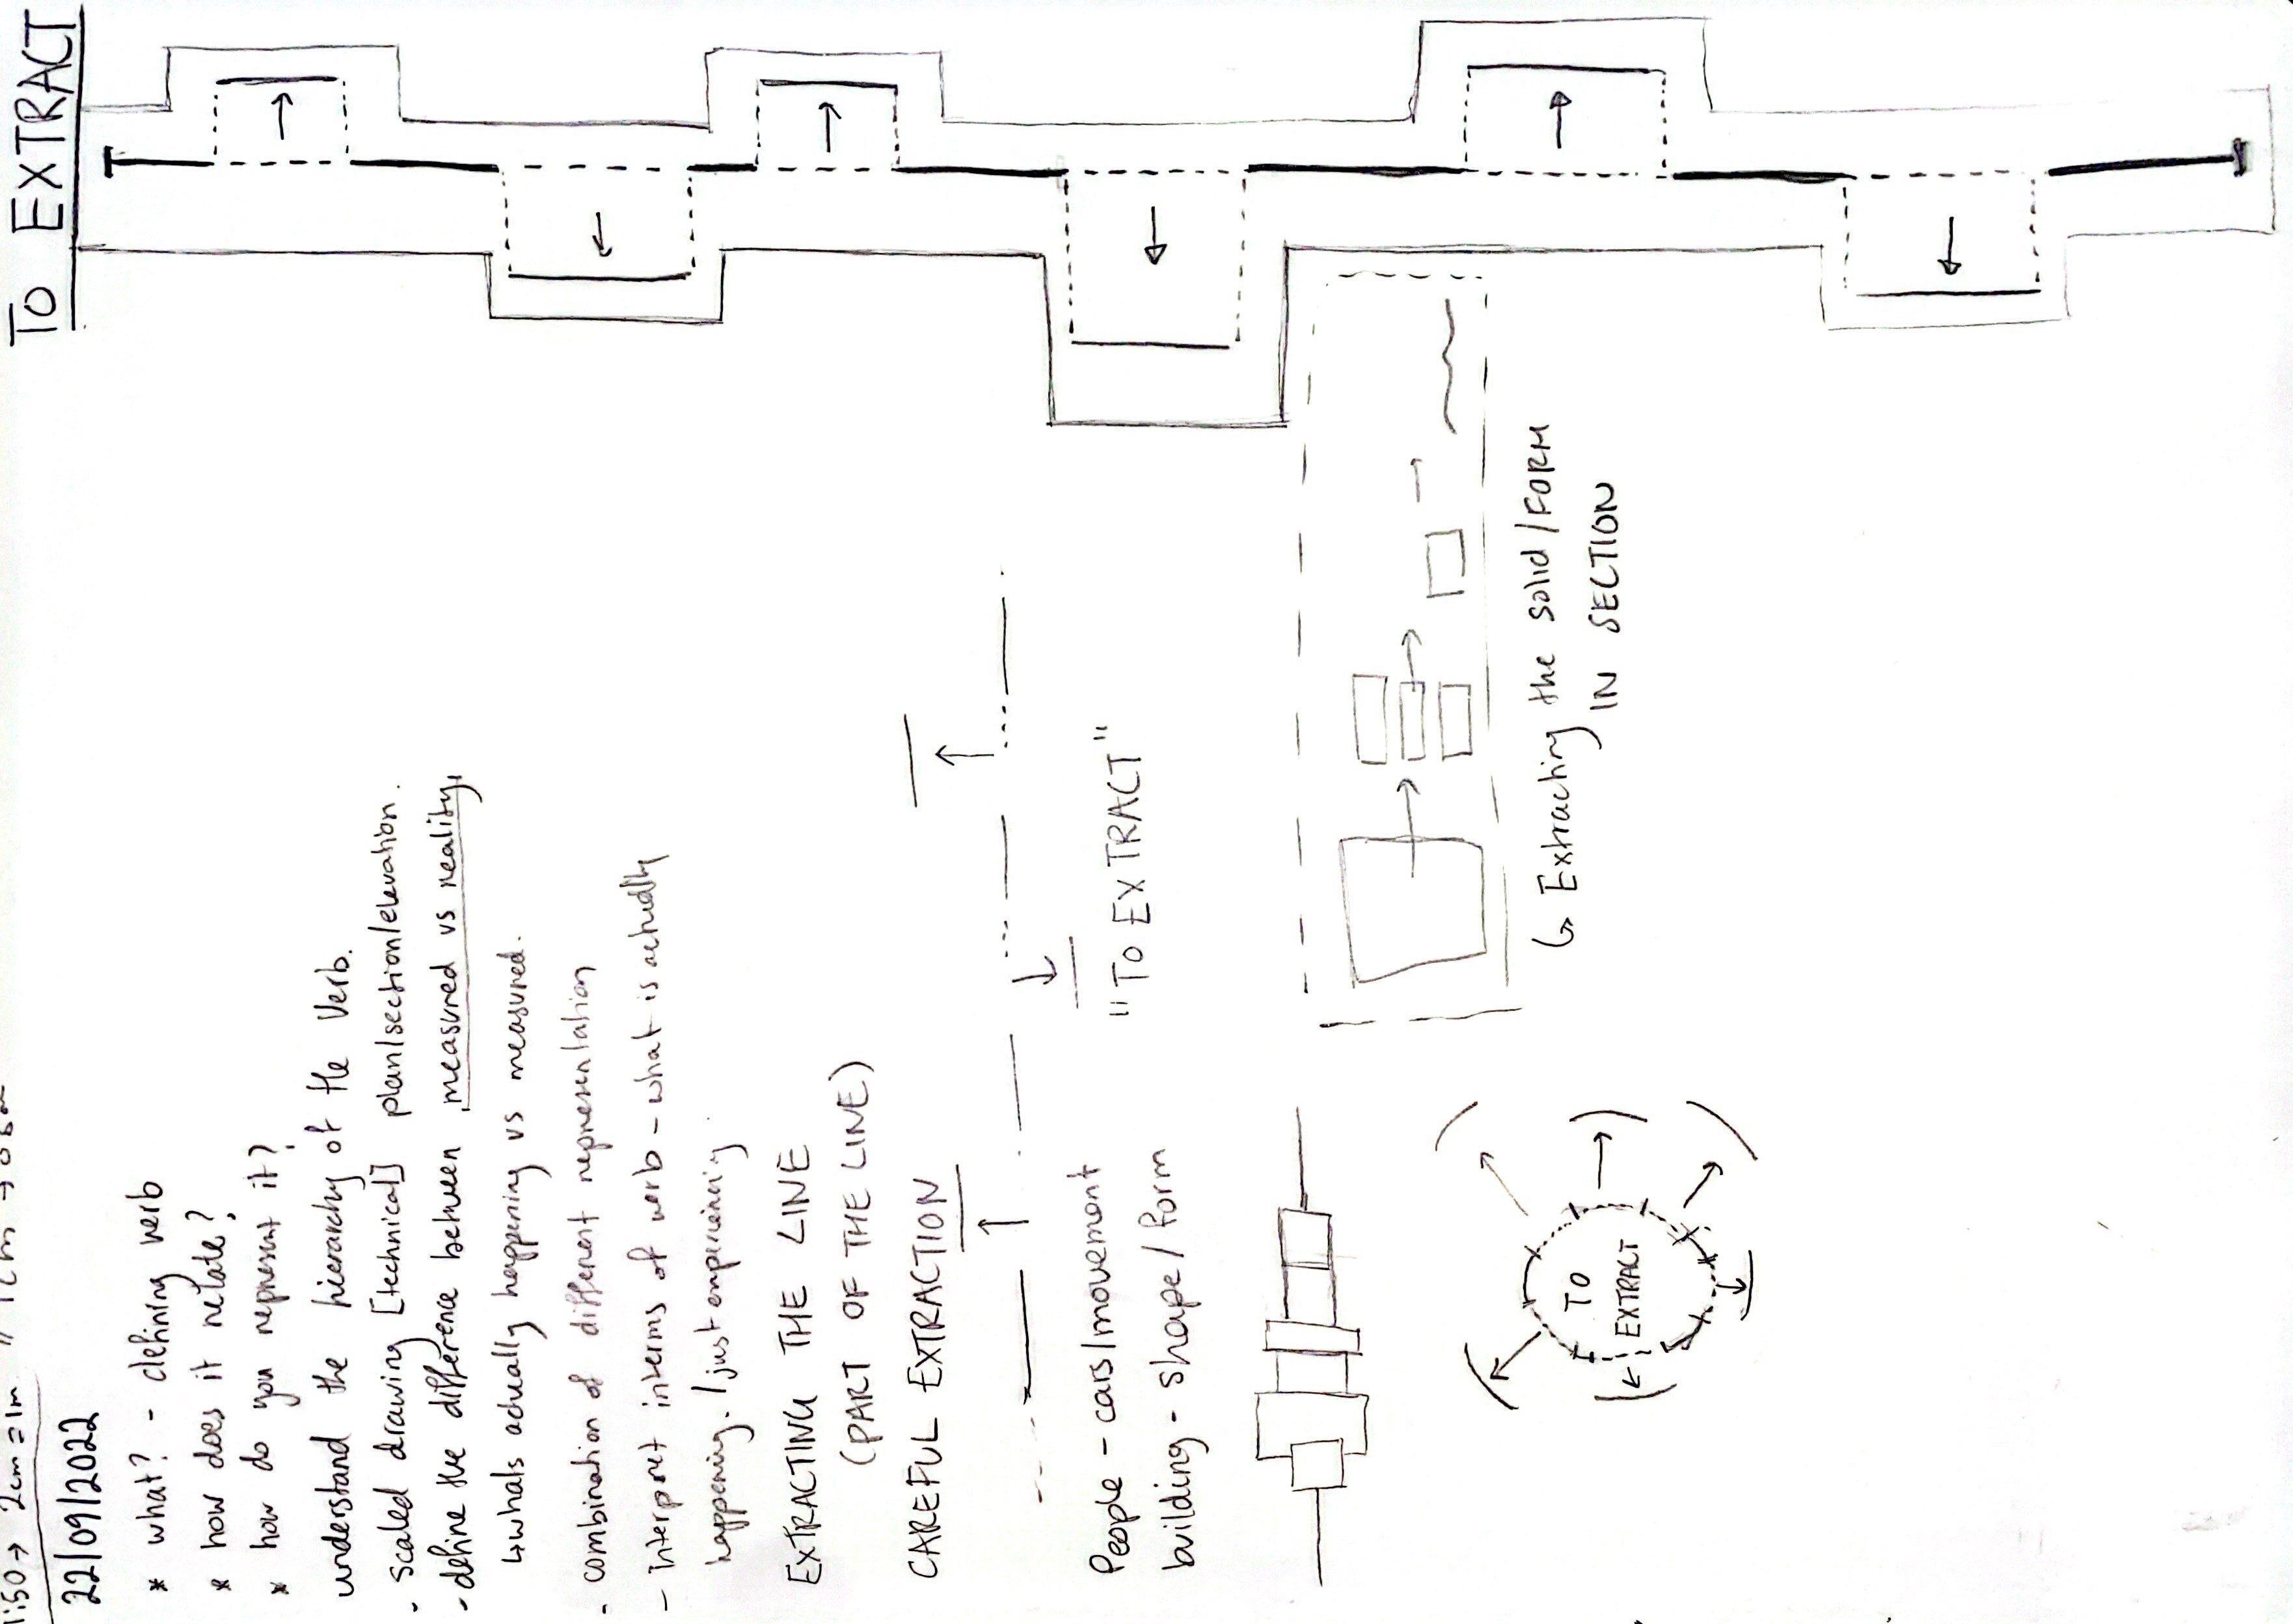 1:50 → 2cm = 1m // 1cm →
22/09/2022
* what? - defining verb
* how does it relate?
* how do you represent it?
understand the hierarchy of the verb.
- scaled drawing [technical] plan/section/elevation.
- define the difference between measured vs reality
↳ whats actually happening vs measured.
- combination of different representation
- interpret interms of verb - what is actually
happening. / just experiencing
EXTRACTING THE LINE
(PART OF THE LINE)
CAREFUL EXTRACTION
"TO EXTRACT"
People - cars/movement
building - shape/form
TO
EXTRACT
↳ Extracting the solid/FORM
IN SECTION
TO EXTRACT